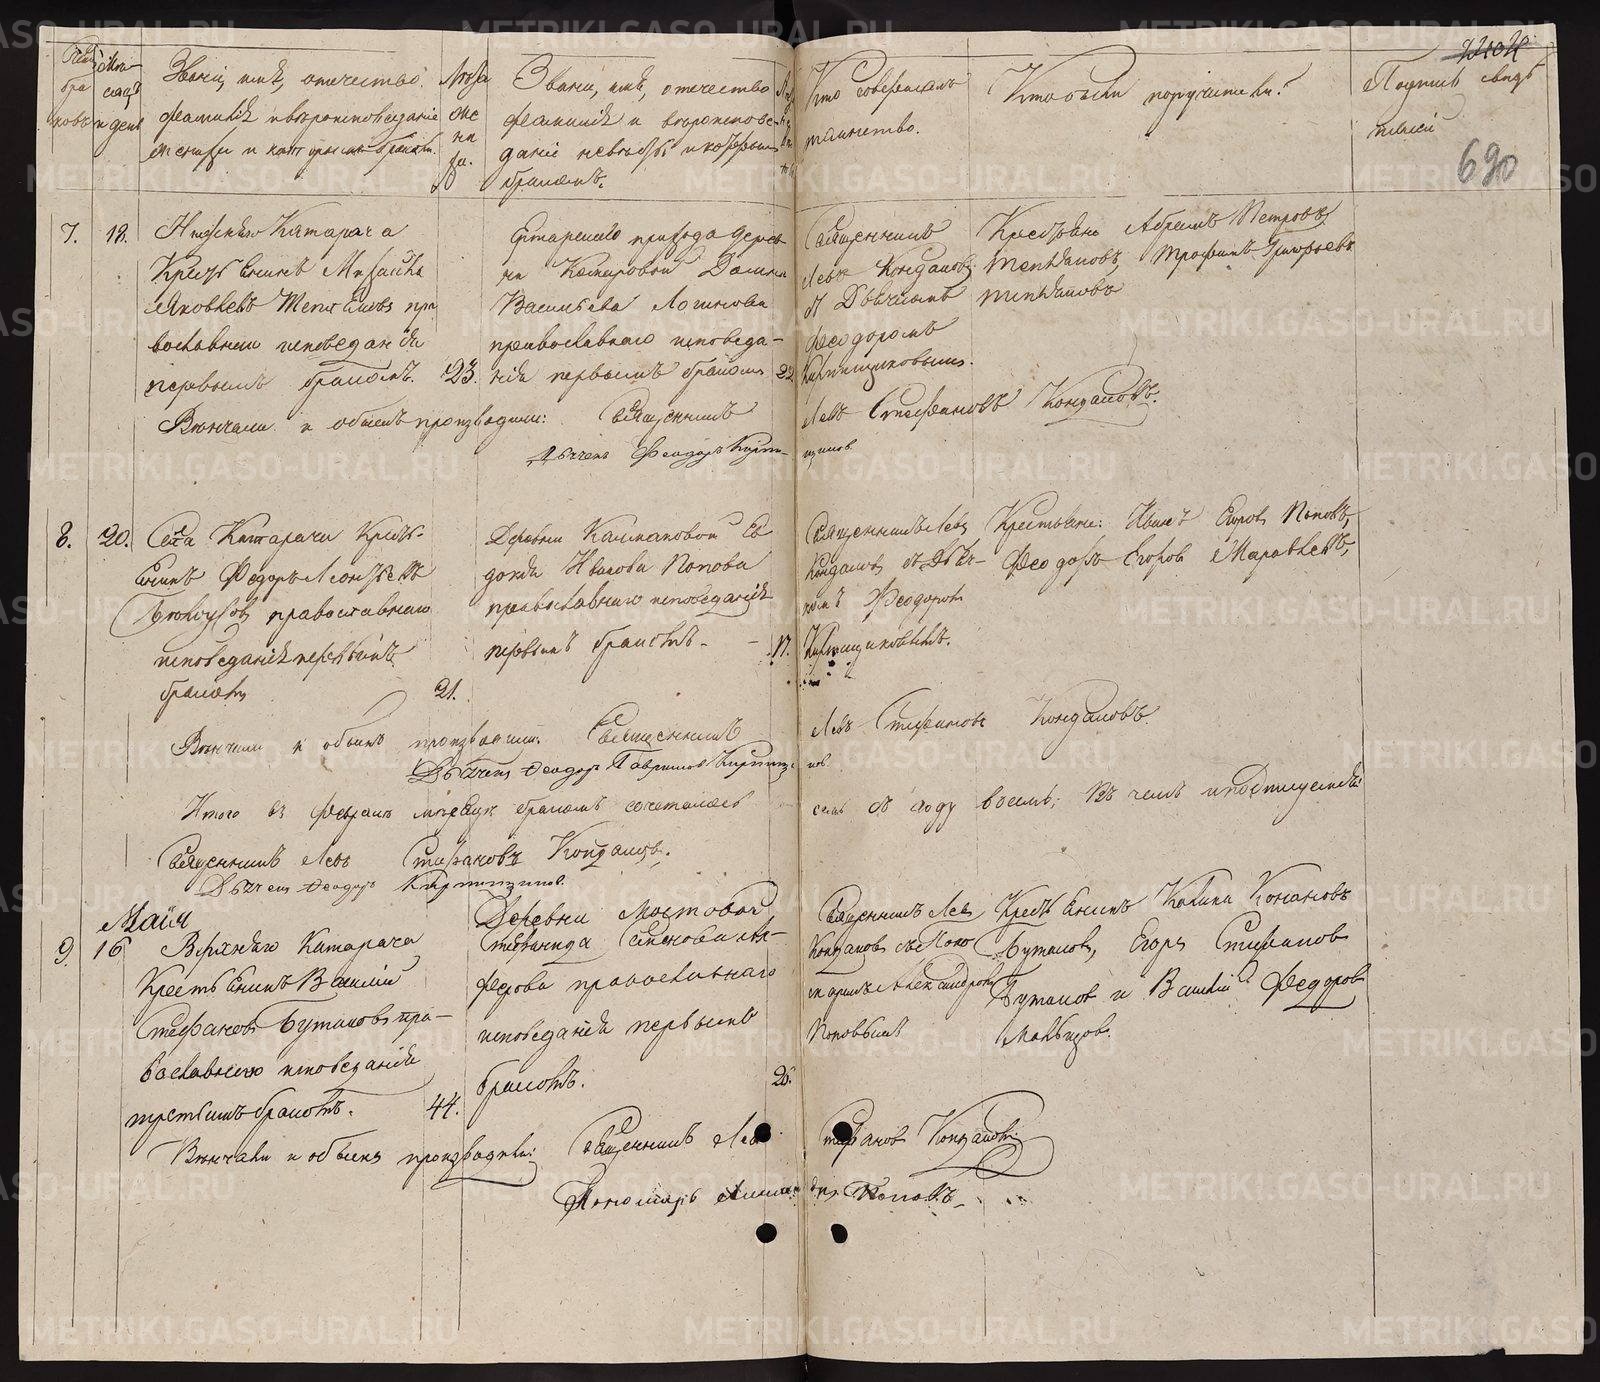 Счетъ бра ковъ
Мѣ- сяцъ и день
Званіе, имя, отечество,
фамилія и вѣроисповѣданіе
жениха и которымъ бракомъ.
Лѣта же ни ха.
Званіе, имя, отечество
фамилія и вѣроиспове-
даніе невѣсты и которымъ
бракомъ.
Кто совершалъ
таинство.
Кто были поручители?
Подпись свидѣ
телей
690
7. 18. Нижняго Катарача
Крестьянинъ Михаилъ
Яковлевъ Теплѣновъ пра
вославнаго исповеданія
первымъ бракомъ. 23.
прихода дерев-
ни Комаровой
Васильева Логинова
православнаго исповеда-
нія первымъ бракомъ 22
Священникъ
Левъ Кондаковъ
съ Дьячкомъ
Феодоромъ
Кирпищиковымъ.
Крестьяне Абрамъ Петровъ
Трофимъ Григорьевъ
Вѣнчали и обыскъ производили: Священникъ Левъ Стефановъ Кондаковъ.
Дьячекъ Феодоръ Кирпи- щиковъ
8. 20. Села Катарача Кресть-
янинъ Федоръ Леонтьевъ
православнаго
исповеданія первымъ
бракомъ 21.
Деревни Калмаковой Ев
докія Иванова Попова
православнаго исповеданія
первымъ бракомъ - 17.
Священникъ Левъ
Кондаковъ съ Дьяч-
комъ Феодоромъ
Кирпищиковымъ.
Крестьяне: Иванъ Егоровъ Поповъ,
Феодоръ Егоровъ
Вѣнчали и обыскъ производили: Священникъ Левъ Стефановъ Кондаковъ.
Дьячекъ Феодоръ Гавриловъ Кирпищи- ковъ
Итого въ Февралѣ мѣсяцѣ бракомъ сочеталось семь въ году восемь; Въ чемъ и подписуемся
Священникъ Левъ Стефановъ Кондаковъ.
Дьячекъ Феодоръ Кирпищиковъ.
Маія
9. 16 Верхняго Катарача
Крестьянинъ Василій
Стефановъ Бутаковъ пра-
вославнаго исповеданія
третьимъ бракомъ. 44.
Деревни Мостовой,
Семенова
православнаго
исповеданія первымъ
бракомъ. 26.
Священникъ Левъ
Кондаковъ съ Поно
маремъ Александромъ
Поповымъ
Крестьянинъ
Бутаковъ, Егоръ Стефановъ
Бутаковъ и Василій Федоровъ
Мальцовъ.
Вѣнчали и обыскъ производили: Священникъ Левъ Стефановъ Кондаковъ
Пономарь Алексан дръ Поповъ
METRIKI.GASO-URAL.RU